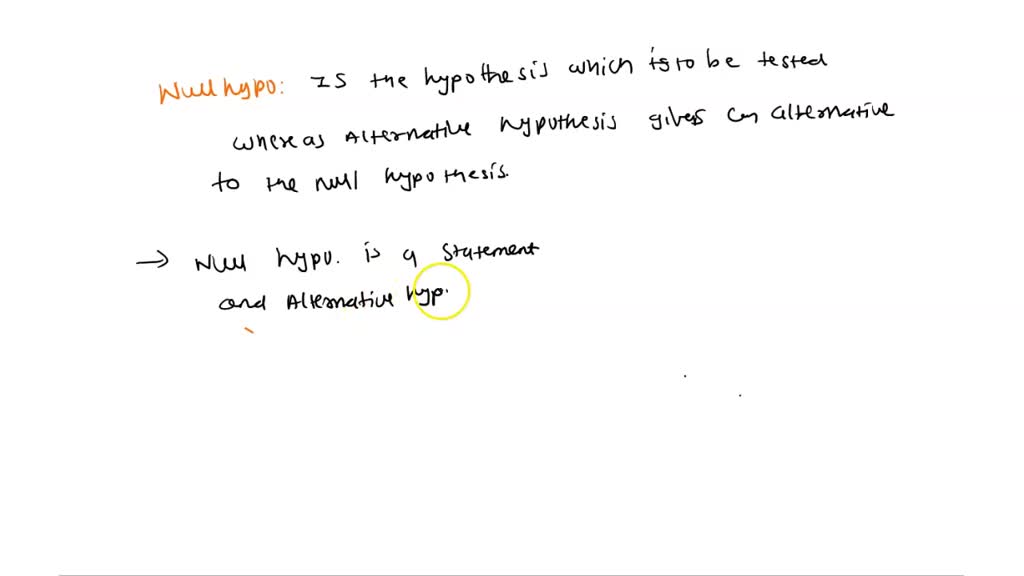 Null hypo: Is the hypothesis which is to be tested
whereas Alternative hypothesis gives an alternative
to the null hypothesis.
→ Null hypo. is a statement
and Alternative hyp.